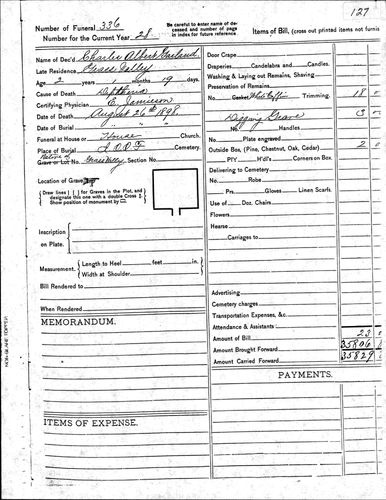 127
Number of Funeral 336
Number for the Current Year 28.
Be careful to enter name of deceased and number of page in index for future reference.
Items of Bill, (cross out printed items not furnis
Name of Dec'd Charlie Albert Garland
Late Residence Grass Valley
Age 2 years months 19 days.
Cause of Death Diptheria
Certifying Physician E. Jamieson
Date of Death August 26th 1898.
Date of Burial " " "
Funeral at House or House Church.
Place of Burial I.O.O.F. Cemetery.
Native of Grass Valley
Grave or Lot No. Section No.
Location of Grave
Draw lines [ ] for Graves in the Plot, and
designate this one with a double Cross ‡
Show position of monument by
Inscription
on Plate.
Measurement: Length to Heel feet in.
Width at Shoulder
Bill Rendered to
When Rendered
MEMORANDUM.
ITEMS OF EXPENSE.
Door Crape
Draperies Candelabra and Candles.
Washing & Laying out Remains, Shaving
Preservation of Remains
No Casket White Coffin Trimming. 18 0
Digging Grave 3 0
No Handles
Plate engraved
Outside Box, (Pine, Chestnut, Oak, Cedar) 2 0
PIY H'd'l's Corners on Box.
Delivering to Cemetery
No Robe
Prs Gloves Linen Scarfs.
Use of Doz. Chairs
Flowers
Hearse
Carriages to
Advertising
Cemetery charges
Transportation Expenses, &c.
Attendance & Assistants
Amount of Bill 23
Amount Brought Forward 35806
Amount Carried Forward 35829
PAYMENTS.